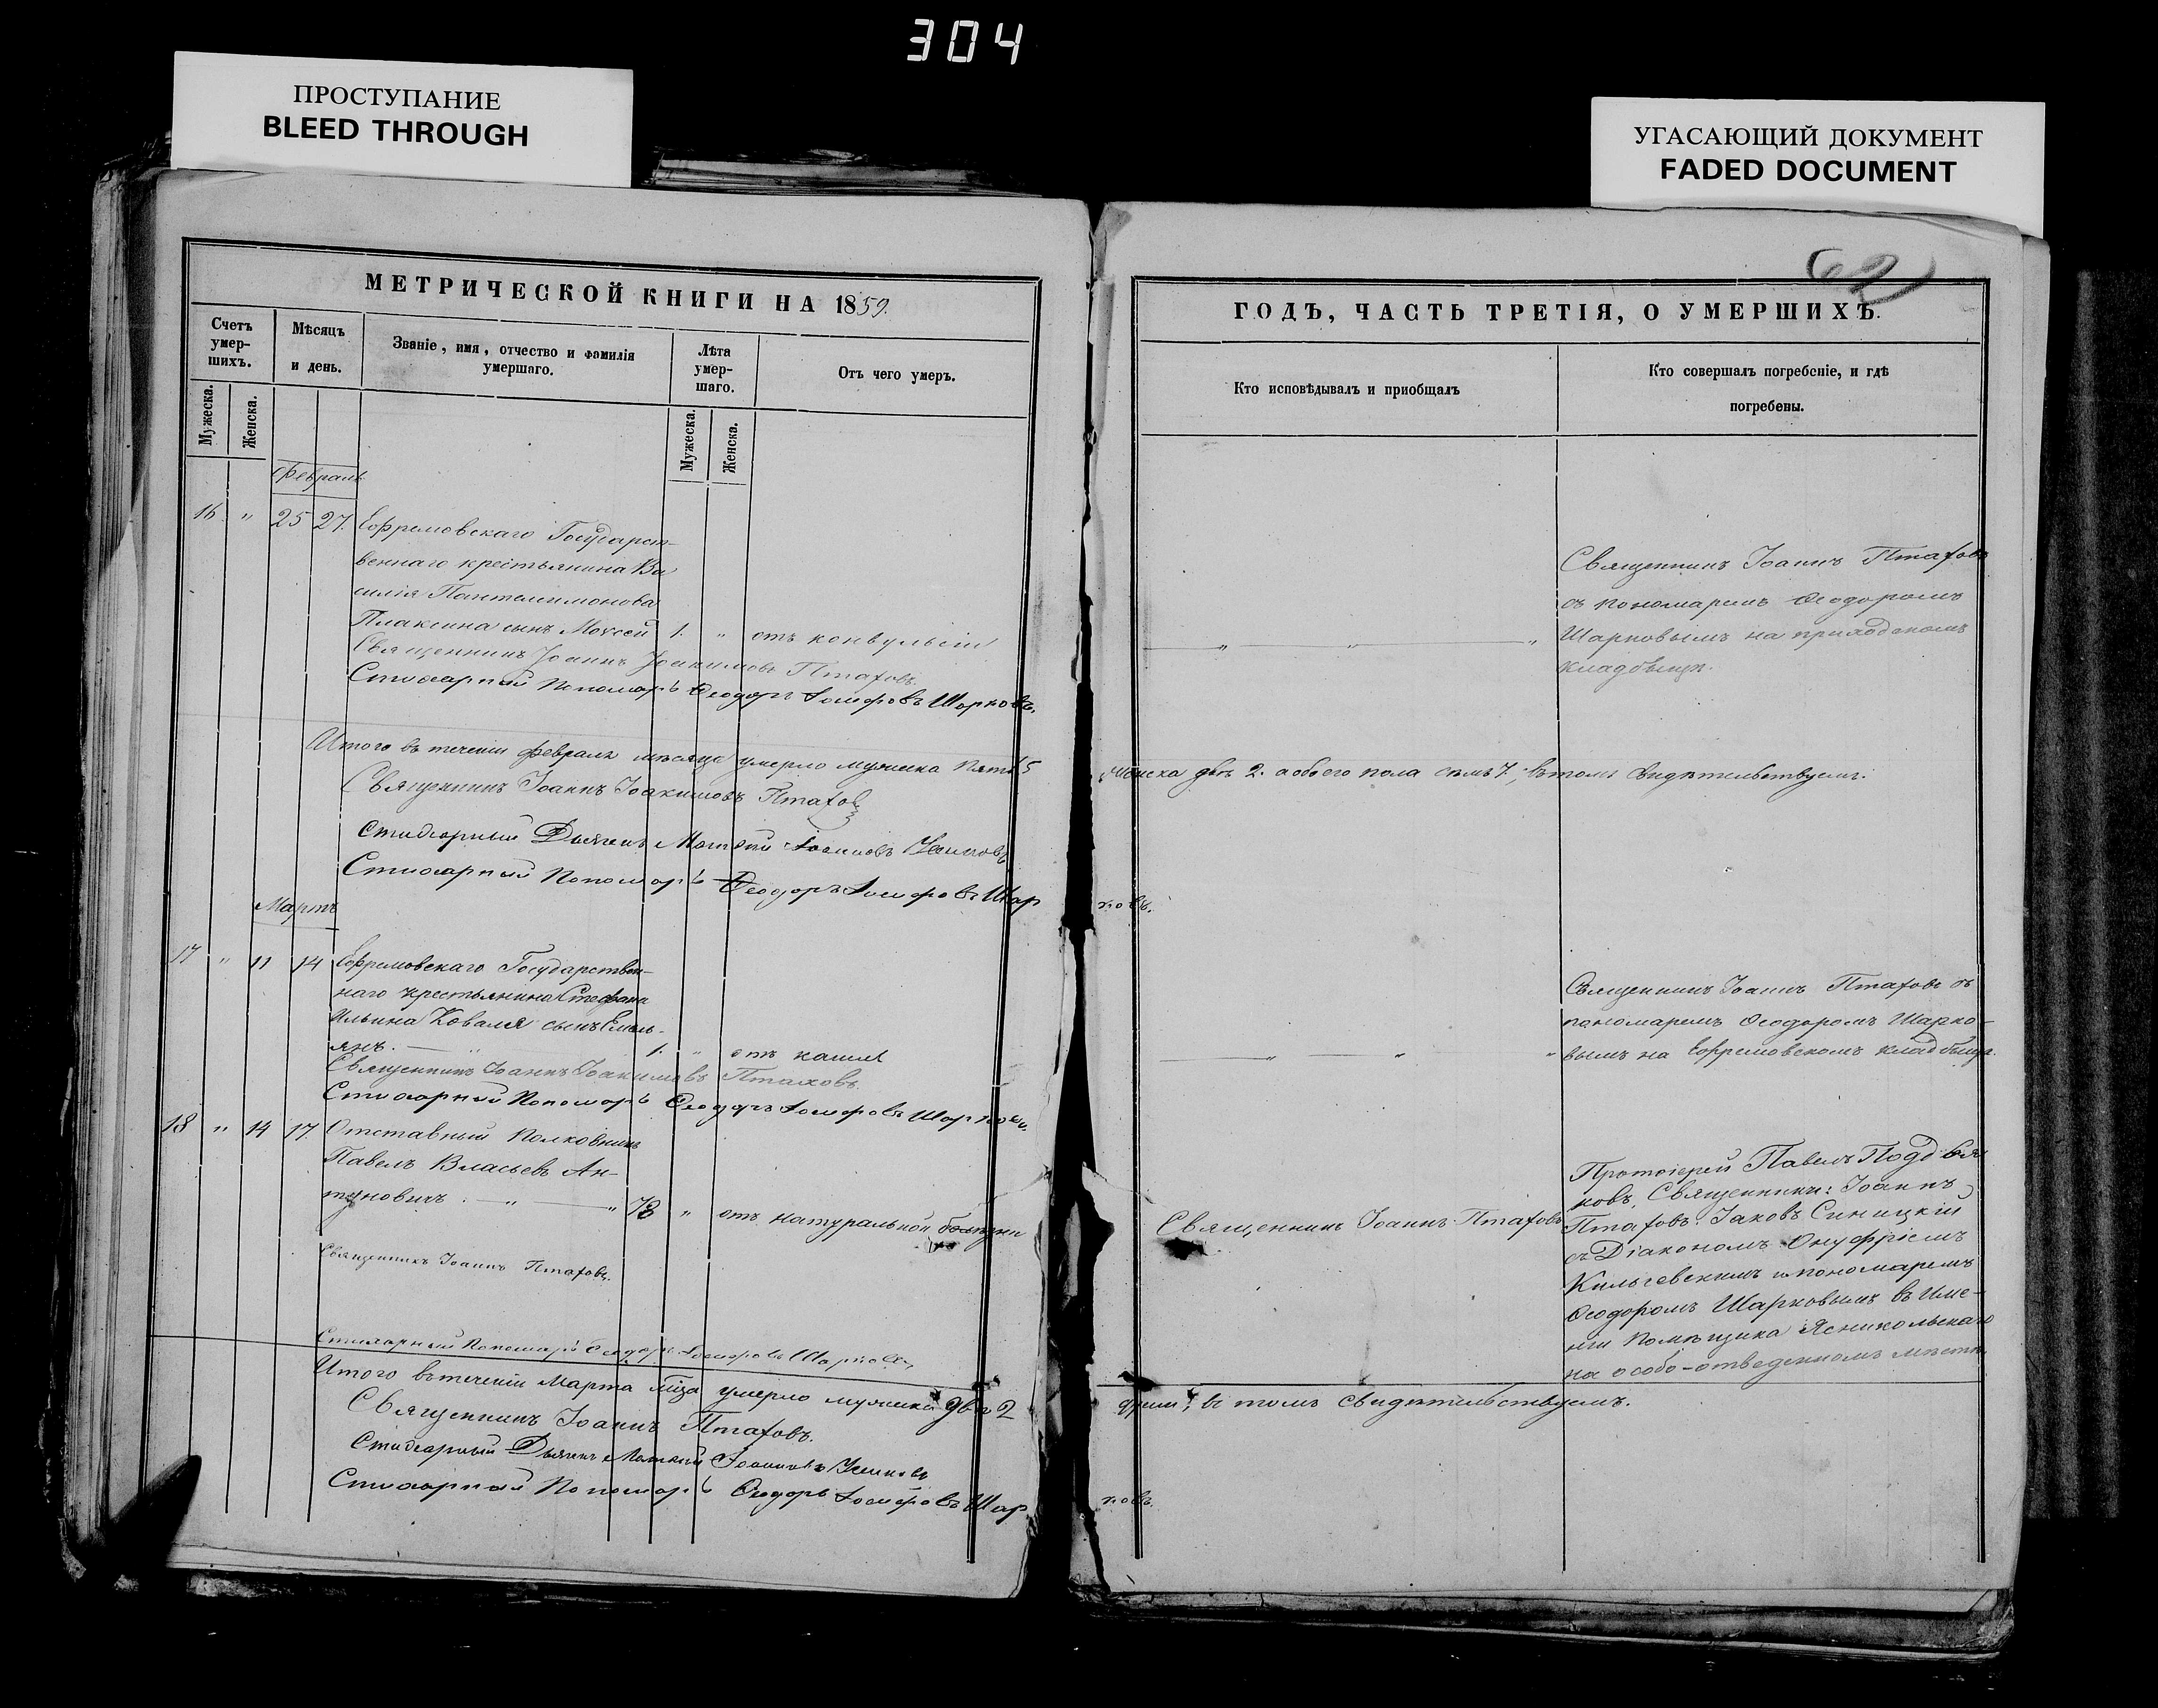 304
ПРОСТУПАНИЕ
BLEED THROUGH
УГАСАЮЩИЙ ДОКУМЕНТ
FADED DOCUMENT
МЕТРИЧЕСКОЙ КНИГИ НА 1859.
Счетъ умер-шихъ.
Мѣсяцъ и день.
Званіе, имя, отчество и фамилія умершаго.
Лѣта умер-шаго.
Отъ чего умеръ.
Мужеска.
Женска.
Мужеска.
Женска.
Февраль
16 " 25 27. Ефремовскаго Государст-
веннаго крестьянина Ва
силія Пантелимонова
Плаксина сынъ Моvсей 1. " отъ конвульсіи
Священникъ Іоаннъ Іоакимовъ Птаховъ.
Стихарный Пономарь Ѳеодоръ Іосифовъ Шарковъ.
Итого въ теченіи Февраля мѣсяца умерло мужеска пять 5
Священникъ Іоаннъ Іоакимовъ Птаховъ
Стихарный Дьячекъ Іоанновъ
Стихарный Пономарь Ѳеодоръ Іосифовъ Шар
Мартъ
17 " 11 14 Ефремовскаго Государствен-
наго крестьянина Стефана
Ильина Коваля сынъ Емель-
янъ. " 1. " отъ кашля
Священникъ Іоаннъ Іоакимовъ Птаховъ.
Стихарный Пономарь Ѳеодоръ Іосифовъ Шарковъ.
18 " 14 17. Отставный Полковникъ
Павелъ Власьевъ Ан-
тоновичъ. " " 73 " отъ натуральной болѣзни
Священникъ Іоаннъ Птаховъ.
Стихарный Пономарь Ѳеодоръ Іосифовъ Шарковъ
Итого въ теченіи Марта мѣца умерло мужеска два 2
Священникъ Іоаннъ Птаховъ.
Стихарный Дьячекъ Іоанновъ
Стихарный Пономарь Ѳеодоръ Іосифовъ Шар
62
ГОДЪ, ЧАСТЬ ТРЕТІЯ, О УМЕРШИХЪ.
Кто исповѣдывалъ и пріобщалъ
Кто совершалъ погребеніе, и гдѣ
погребены.
Священникъ Іоаннъ Птаховъ
съ пономаремъ Ѳеодоромъ
" " " Шарковымъ на приходскомъ
кладбищѣ.
женска двѣ 2. а обоего пола семь 7, въ томъ свидѣтельствуемъ.
ковъ.
Священникъ Іоаннъ Птаховъ съ
пономаремъ Ѳеодоромъ Шарко-
" " " вымъ на Ефремовскомъ кладбищѣ.
Протоіерей Павелъ
ковъ, Священники: Іоаннъ
Священникъ Іоаннъ Птаховъ Птаховъ. Іаковъ Синицкій
съ Діакономъ Онуфріемъ
Кильчевскимъ и пономаремъ
Ѳеодоромъ Шарковымъ въ Име-
ніи Помѣщика Яснипольскаго
на особо-отведенномъ мѣстѣ.
въ томъ свидѣтельствуемъ.
ковъ.